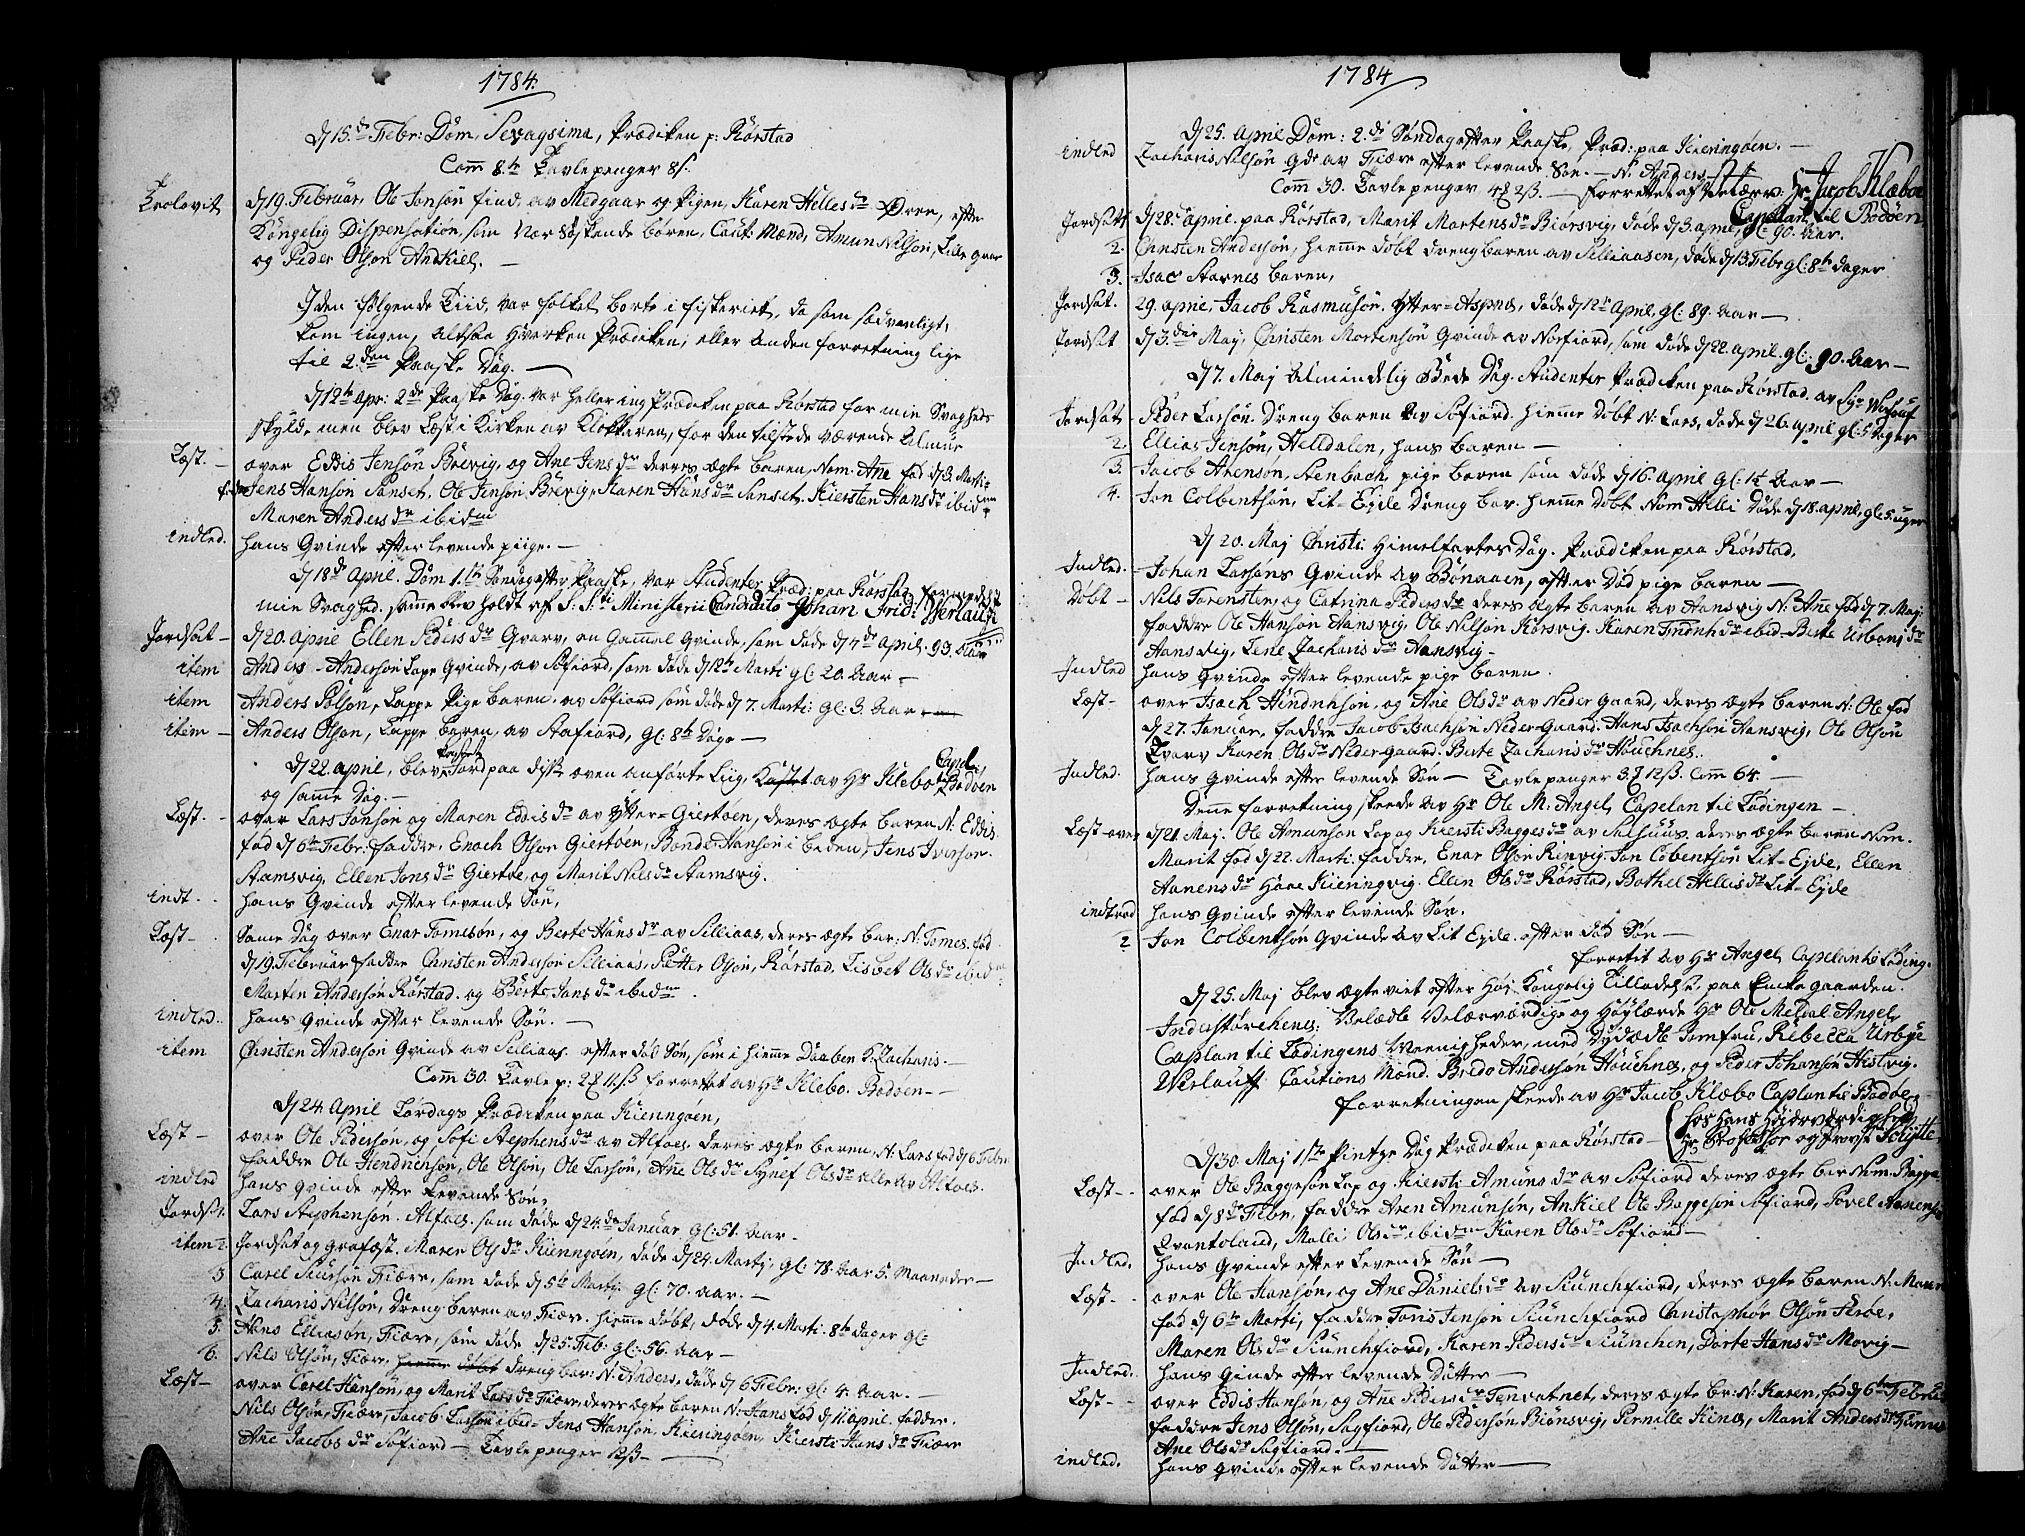 1784.
D/15.de Febr: Dom, Sexagsima, Prædiken p: Rørstad
Com 8te Tavlepenger 8ſ.
Trolovit
D/19. Februar, Ole Jonsøn find, av Medgaar og Pigen, Karen Hellesdr Øren, efter
Kongelig Dispensation, som Nær Søskende børen, Caut: Mænd, Amun Nilsøn, Lille gaar
og Peder Olsøn Andkiel. —
I den følgende Tiid, var folket borte i fiskeriet, da som sædvanligt,
kom ingen, altsaa hverken Prædiken, eller anden forretning lige
til 2.den Paaske Dag. —
D/12te Apr: 2de Paaske Dag. var heller ing Prædiken paa Rørstad for min Svagheds
skyld, men blev Læst i Kirken av Klokkeren, for den tilstede værende Almue
Læst. —
over Eddis Jensøn Brevig, og Ane Jensdr deres ægte baren, Nom. Ane fød d/3. Marti
Jens Hansøn Sanset, Ole Jensøn Brevig, Karen Hansdr Sanset, Kiersten Hansdr ibidm
Maren Andersdr ibidm
indled.
hans Qvinde efter levende piige. —
D/18de April. Dom 1.ste Søndag efter Paaske, var Studenter Præd: paa Rørstad formedelst
min Svaghed. samme blev holdt af S. Sti Ministerii Candidato Johan Frid: Werlauff
Jordsat —
d/20. Aprie Ellen Pedersdr Qvarv, en gammel Qvinde, som døde d/4de April. 93. Aar
item
Anders Anderson Lape Qvinde, av Søfiord, som døde d/12te Marti gl: 20. Aar —
item
Anders Polson, Lappe Pige baren. av Søfiord som døde d/7. Marti: gl: 3. Aar
item —
Anders Olson, Lappe baren, av Stafiord, gl: 8te Dage —
D/22. April, blev Kastet Jord paa disse oven anførte Liig, Kastet av Hr Klebo Capel. t Bodøen
og samme Dag. —
Læst. —
over Lars Jonsøn og Maren Eddisdr av Ytter-Giertøen, deres ægte baren N: Eddis.
fød d/6te Febr: faddre, Enoch Olsøn Giertøen, Bonde Hansøn i beden, Jens Iversøn.
Stamsvig, Ellen Jonsdr Giertøe, og Marit Nilsdr Stamsvig.
indt.
hans Qvinde efter levende Søn,
Læst —
Same Dag over Enar Tomesøn, og Berte Hansdr av Selliaas, deres ægte bar: N: Tomes. fød.
d/19. Februar faddre Christen Andersøn Selliaas, Petter Olsøn, Rørstad. Lisbet Olsdr ibid
Marten Andersøn Rørstad. og Berte Jansdr ibidm
indled.
hans Qvinde efter levende Søn. —
item
Christen Andersøn Qvinde av Selliaas. efter død Søn, som i hiemme Daaben K. Zacharis. —
Com 30. Tavle p: 2 ℳ 11. ß forrettet av Hr Klebo. Bodøen —
D/24 April Lørdags Prædiken paa Kierringøen,
Læst —
over Ole Pedersøn, og Sofi Stephensdr av Alfaes deres ægte baren, N: Lars fød d/6 Febr
faddre Ole Hendrichsøn, Ole Olsøn, Ole Larsøn, Ane Olsdr Synef Olsdr alle av Alfaes.
indled
hans Qvinde efter Levende Søn,
Jords:
Lars Stephensøn. Alfaes. som døde d/24de Januar gl: 51. Aar. —
item 2.
Jordsat og Grafæst. Maren Olsdr Kierringøen, døde d/24. Martj, gl: 78. Aar 5. Maaneder —
3
Carel Siursøn Fiære, som døde d/5te Martj. gl: 70. aar. —
4.
Zacharis Nilsøn, Dreng baren av Fiære. hiemme døbt, døde d/4. Marti. 8te dager gl.
5.
Hans Elliasøn, Fiære, som døde d/25. Feb: gl: 56. Aar —
6.
Nils Olsøn, Fiære, hiemme døbt dreng bar: N: Anders, døde d/6 Febr: gl: 4. Aar. —
Læst —
over Carel Hansøn, og Marit Larsdr Fiære, deres ægte baren N: Hans fød d/11 april. faddre.
Nils Olsøn, Fiære, Jacob Larsøn ibid— Jens Hansøn, Kierringøen, Kiersti Hansdr Fiære
Ane Jacobsdr Sofiord — Tavlepenger 12ß —
1784
D/25. April Dom: 2.de Søndag efter Paaske, Præd: paa Kieringøen. —
indled
Zacharis Nilsøn Qde av Fiære efter levende Søn. — N: Anders
Com 30. Tavlepenger 4ℳ 2ß — forrettet af Hr Jacob Klæboe
Capelan til Bodøen,
Jordsatt
d/28. April. paa Rørstad, Marit Martensdr Biørsvig, døde d/3. april, gl: 90. Aar.
2.
Christen Andersøn, hiemme døbt dreng baren av Selliaasen, døde d/13 Febr gl: 8te dager
3.
Isac Starnes baren,
Jordsat.
29. Aprie, Jacob Rasmusøn. Ytter-Aspnæs, døde d/12te April, gl: 89. Aar —
Jordsat
d/3.die Maj, Christen Mortensøn Qvinde av Norfiord, som døde d/22 April. gl: 90. Aar —
D/7. Maj Almindelig Bede Dag. Studenter Prædiken paa Rørstad. av Sr Werlauf
Jordsat —
Peder Larsøn. Dreng baren av Søfiord. hiemme døbt N: Lars, døde d/26. april gl: 5 dager
2.
Ellias Jensøn, Helldalen, hans baren —
3.
Jacob Arensøn, Stenbach, pige baren som døde d/16. april gl: 1½ Aar —
4.
Jon Colbentsøn, Lit-Ejde Dreng bar. hiemme døbt Nom Helli døde d/18. april, gl: 5. uger
D/20. Maj Christi Himelfartes Dag. Prædiken paa Rørstad,
Indled.
Johan Larsøns Qvinde av Bønaaen, efter død pige baren —
Døbt —
Nils Torensten, og Catrina Pedersdr deres ægte baren av Hansvig N: Ane fød d/7. Maj.
faddre Ole Hansøn Hansvig, Ole Nilsøn Korsvig. Karen Findnhdr ibid— Berte Urbansdr
Hansvig, Lene Zacharisdr Hansvig —
Indled
hans Qvinde efter levende pige baren.
Læst —
over Isach Hindrihsøn, og Ane Olsdr av Nedergaard, deres ægte baren N: Ole fød
d/27. Januar, faddre Jacob Isachsøn Neder-Gaard. Hans Isachsøn Hansvig, Ole Olsøn
Tvarv Karen Olsdr Neder-gaard. Berte Zacharisdr Houchnes.
Indled.
hans Qvinde efter levende Søn — Tavlepenger 3.ℳ 12ß. Com 64. —
Denne forretning skeede av Hr Ole M: Angel, Capelan til Lødingen —
Læst over
d/21. Maj. Ole Amunsøn Lap og Kiersti Baggesdr av Salsuus. deres ægte baren Nom.
Marit fød d/22. Marti. faddre, Enar Olsøn Rienvig. Jon Cobentsøn Lit-Ejde, Ellen
Aanensdr Haae Kieringvig. Ellen Olsdr Rørstad, Bothel Hellisdr Lit-Ejde
indtrod
hans Qvinde efter levende Søn.
2
Jon Colbentsøn Qvinde av Lit Ejde. efter død Søn —
forretit av Hr Angel, Capelan til Løding.
D/25. Maj blev ægteviet efter Høj Kongelig Tilladelse. paa Enkegaarden.
Inderstørchenes. Velædle Velærværdige og Høylærde Hr Ole Meldal Angel,
Caplan til Lødingens Meenigheder, med Dydædle Jomfru, Rebecca Urbye
Werlauff. Cautions Mænd. Bredo Andersøn Houchnes, og Peder Johansøn Hestvig.
forretningen skeede av Hr Jacob Klæbo Caplan til Bodøe
hos Hans Høiærværdighed
Hr Professor og Provst Schytte.
D/30. Maj 1ste Pintze Dag Prædiken paa Rørstad —
Læst —
over Ole Baggesøn Lap og Kiersti Amunsdr av Sofiord deres ægte bar Nom. Bagge
fød d/8de Febr, faddre Aren Amunsøn, Ankiel Ole Baggesøn Sofiord, Povel Aanensø
Qvantoland, Malli Olsdr ibidm Karen Olsdr Sofiord —
Indled.
hans Qvinde efter Levende Søn —
Læst —
over Ole Hansøn, og Ane Danielsdr av Siunchfiord, deres ægte baren N: Maren
fød d/6te Marti, faddre Tosten Jensøn Siunchfiord Christophør Olsøn Færøe,
Maren Olsdr Siunchfiord, Karen Pedersdr Siunchen, Dorte Hansdr Movig —
Indled.
hans Qinde efter levende Datter —
Læst —
over Eddis Hansøn, og Ane Pedersdr Tenvatnet, deres ægte br: N: Karen, fød d/6te Febru
faddre Jens Olsøn, Sagfiord, Ole Pedersøn Biønsvig, Pernille Kines, Marit Andersdr
Ane Olsdr Sagfiord. —
indled.
hans Qvinde efter levende Datter —